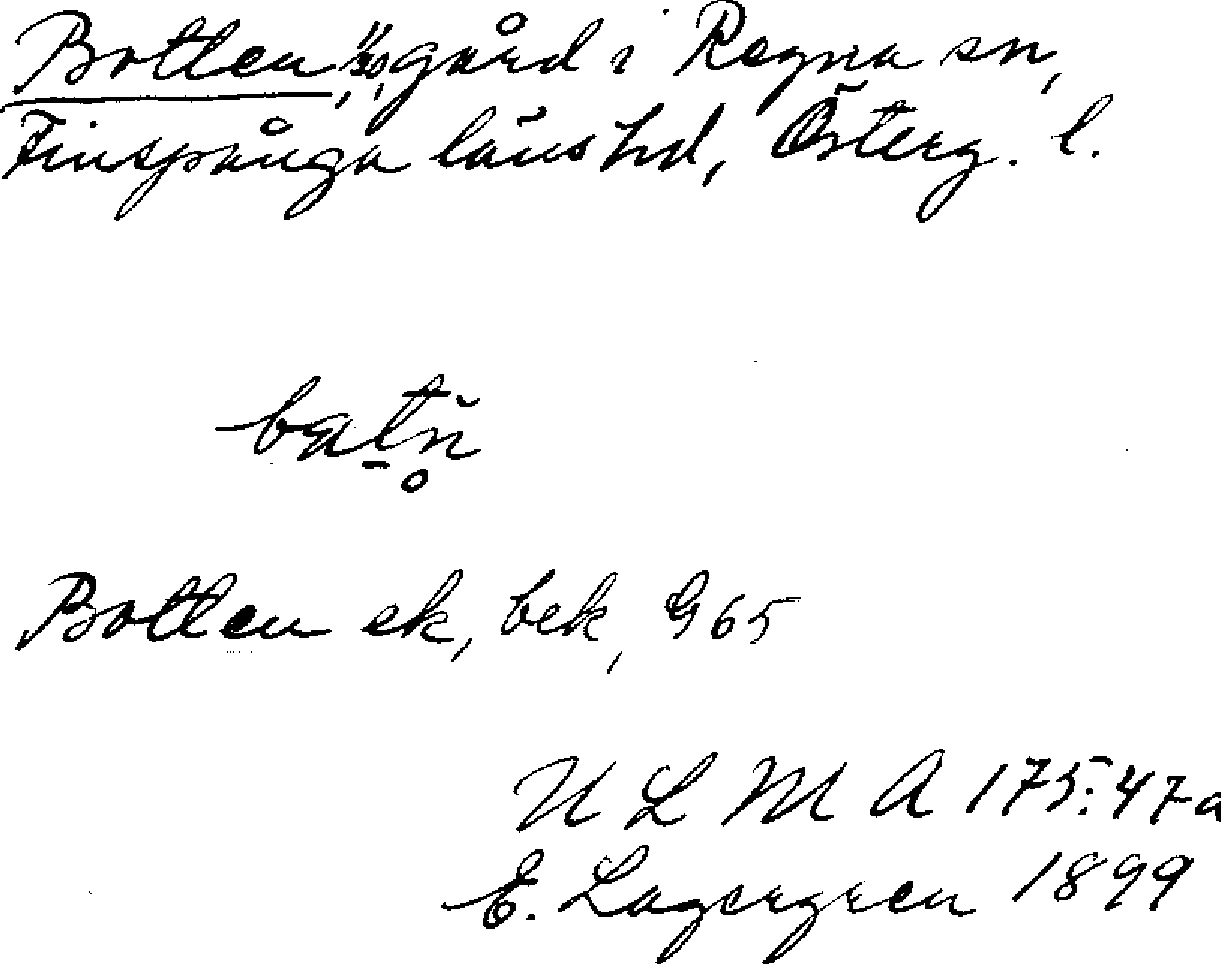 Botten, gård i Regna sn,
Finspånga läns hd, Österg. l.
Botten ek, bek, G 65
U L M A 175:47a
E. Lagergren 1899